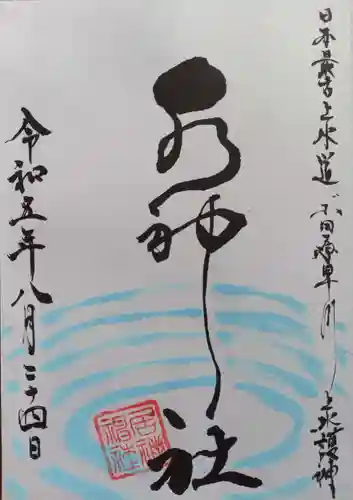 日本最古上水道 小田原早川上水護神
居神神社
令和五年八月二十四日